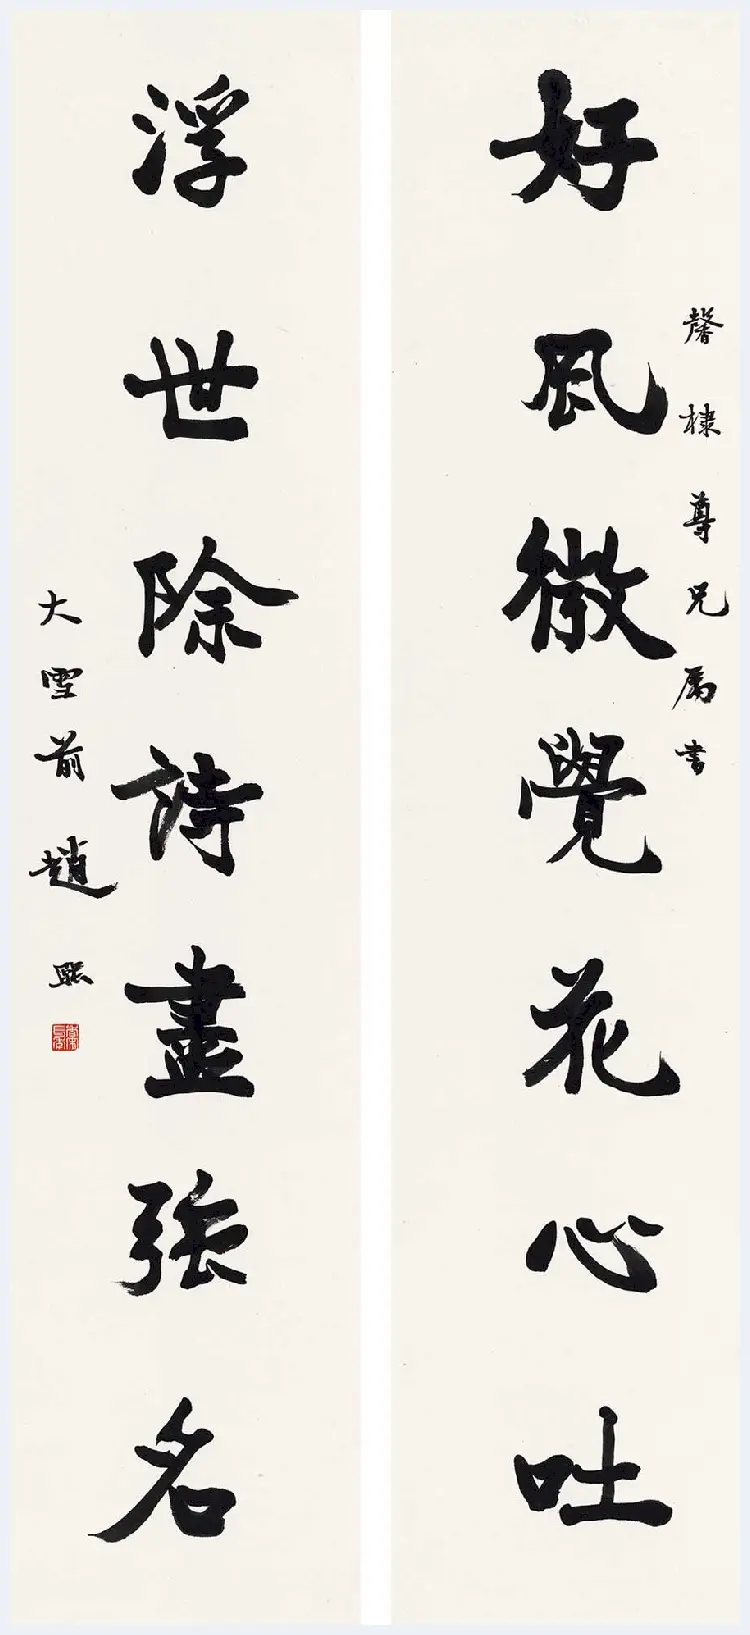 馨棣尊兄属書
好風微覺花心吐
浮世除詩盡強名
大雪前趙熙